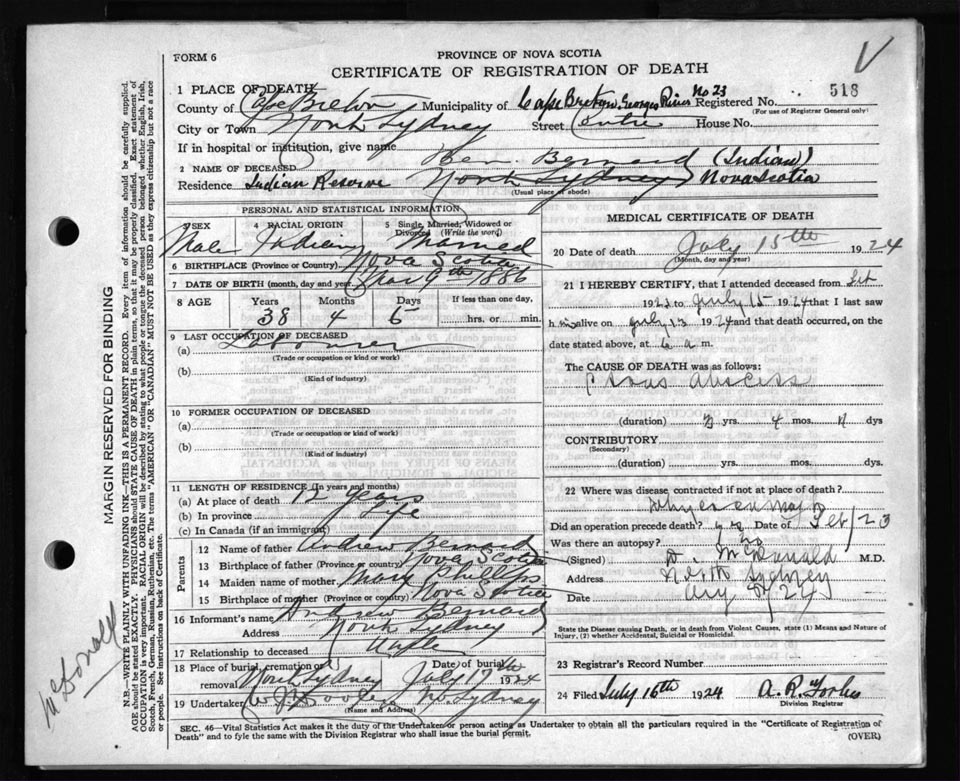 FORM 6
PROVINCE OF NOVA SCOTIA
CERTIFICATE OF REGISTRATION OF DEATH
1 PLACE OF DEATH
County of Cape Breton Municipality of Cape Breton Georges River No 23 Registered No. 518
(For use of Registrar General only)
City or Town North Sydney Street Centre House No.
If in hospital or institution, give name
2 NAME OF DECEASED Ben. Bernard (Indian)
Residence Indian Reserve North Sydney Nova Scotia
(Usual place of abode)
PERSONAL AND STATISTICAL INFORMATION
3 SEX 4 RACIAL ORIGIN 5 Single, Married, Widowed or Divorced (Write the word)
Male Indian Married
6 BIRTHPLACE (Province or Country) Nova Scotia
7 DATE OF BIRTH (month, day and year) Mar 9th 1886
8 AGE Years Months Days If less than one day,
38 4 6 hrs. or min.
9 LAST OCCUPATION OF DECEASED
(a) Labourer
(Trade or occupation or kind of work)
(b)
(Kind of industry)
10 FORMER OCCUPATION OF DECEASED
(a)
(Trade or occupation or kind of work)
(b)
(Kind of industry)
11 LENGTH OF RESIDENCE (In years and months)
(a) At place of death 12 years
(b) In province Life
(c) In Canada (if an immigrant)
Parents
12 Name of father Andrew Bernard
13 Birthplace of father (Province or country) Nova Scotia
14 Maiden name of mother Mary Phillips
15 Birthplace of mother (Province or country) Nova Scotia
16 Informant's name Andrew Bernard
Address North Sydney
17 Relationship to deceased
18 Place of burial, cremation or removal North Sydney Date of burial July 17th 1924
19 Undertaker No Sydney
(Name and Address)
MEDICAL CERTIFICATE OF DEATH
20 Date of death July 15th 1924
(Month, day and year)
21 I HEREBY CERTIFY, that I attended deceased from
1923 to July 15 1924 that I last saw
h is alive on July 13 1924 and that death occurred, on the
date stated above, at 6 a m.
The CAUSE OF DEATH was as follows:
Psoas abscess
(duration) yrs. 4 mos. dys
CONTRIBUTORY
(Secondary)
(duration) yrs. mos. dys.
22 Where was disease contracted if not at place of death?
Did an operation precede death? yes Date of Feb/23
Was there an autopsy? no
(Signed) D McDonald M.D.
Address North Sydney
Date
State the Disease causing Death, or in death from Violent Causes, state (1) Means and Nature of Injury, (2) whether Accidental, Suicidal or Homicidal.
23 Registrar's Record Number
24 Filed July 16th 1924 A. R. Forbes
Division Registrar
SEC. 46—Vital Statistics Act makes it the duty of the Undertaker or person acting as Undertaker to obtain all the particulars required in the "Certificate of Registration of
Death" and to fyle the same with the Division Registrar who shall issue the burial permit.
(OVER)
MARGIN RESERVED FOR BINDING
N.B.—WRITE PLAINLY WITH UNFADING INK—THIS IS A PERMANENT RECORD. Every item of information should be carefully supplied.
AGE should be stated EXACTLY. PHYSICIANS should STATE CAUSE OF DEATH in plain terms, so that it may be properly classified. Exact statement of
OCCUPATION is very important. RACIAL ORIGIN will be described by stating to what people or tongue the deceased person belonged whether English, Irish,
Scotch, French, German, Russian, Ruthenian, etc. The terms "AMERICAN" OR "CANADIAN" MUST NOT BE USED as they express citizenship but not a race
or people. See instructions on back of Certificate.